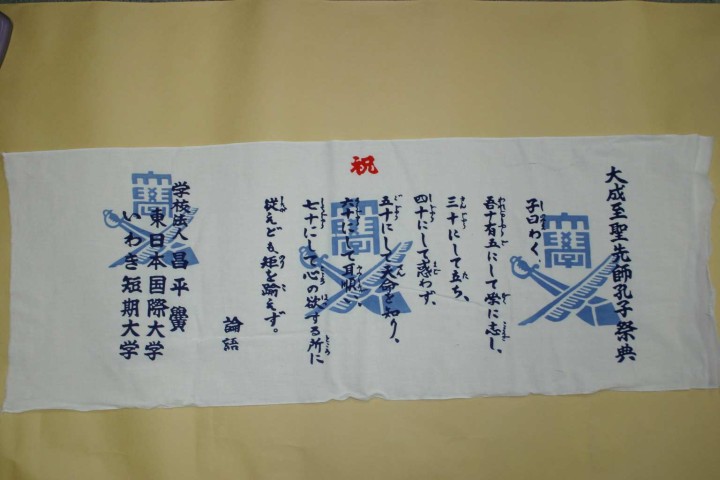 祝
大成至聖先師孔子祭典
子曰わく、
吾十有五にして学に志し、
三十にして立ち、
四十にして惑わず、
五十にして天命を知り、
六十にして耳順い、
七十にして心の欲する所に
従えども、矩を踰えず。
論語
学校法人 昌平黌
東日本国際大学
いわき短期大学